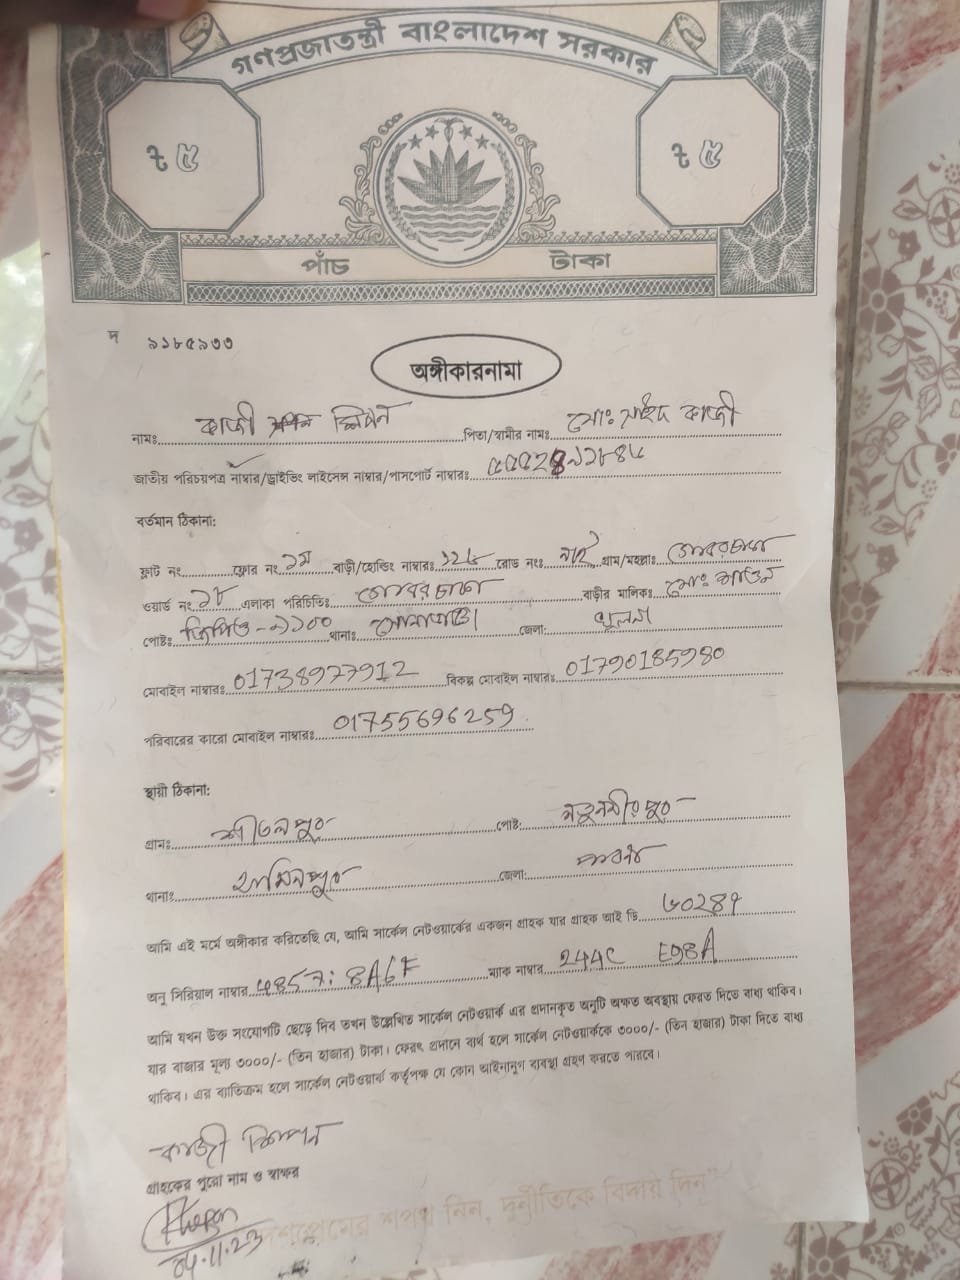 গণপ্রজাতন্ত্রী বাংলাদেশ সরকার
৳ ৫ ৳ ৫
পাঁচ টাকা
দ ৯১৮৫৯৩৩
অঙ্গীকারনামা
নামঃ কাজী লিপন পিতা/স্বামীর নামঃ মোঃ সাইদ কাজী
জাতীয় পরিচয়পত্র নাম্বার/ড্রাইভিং লাইসেন্স নাম্বার/পাসপোর্ট নাম্বারঃ
বর্তমান ঠিকানা:
ফ্লাট নং ফ্লোর নং ১ম বাড়ী/হোল্ডিং নাম্বারঃ রোড নংঃ নাই গ্রাম/মহল্লাঃ গোবরচাকা
ওয়ার্ড নং ১৮ এলাকা পরিচিতিঃ গোবরচাকা বাড়ীর মালিকঃ মোঃ
পোষ্টঃ জিপিও - ৯১০০ থানাঃ সোনাডাঙ্গা জেলা: খুলনা
মোবাইল নাম্বারঃ 01738977912 বিকল্প মোবাইল নাম্বারঃ 01790185980
পরিবারের কারো মোবাইল নাম্বারঃ 01755696259
স্থায়ী ঠিকানা:
গ্রামঃ শীতলপুর পোষ্ট: নতুনমীরপুর
থানাঃ আমিনপুর জেলা: পাবনা
আমি এই মর্মে অঙ্গীকার করিতেছি যে, আমি সার্কেল নেটওয়ার্কের একজন গ্রাহক যার গ্রাহক আই ডি ৬০২৪৭
অনু সিরিয়াল নাম্বার 4857:8A6F ম্যাক নাম্বার 244C E98A
আমি যখন উক্ত সংযোগটি ছেড়ে দিব তখন উল্লেখিত সার্কেল নেটওয়ার্ক এর প্রদানকৃত অনুটি অক্ষত অবস্থায় ফেরত দিতে বাধ্য থাকিব।
যার বাজার মূল্য ৩০০০/- (তিন হাজার) টাকা। ফেরৎ প্রদানে ব্যর্থ হলে সার্কেল নেটওয়ার্ককে ৩০০০/- (তিন হাজার) টাকা দিতে বাধ্য
থাকিব। এর ব্যতিক্রম হলে সার্কেল নেটওয়ার্ক কর্তৃপক্ষ যে কোন আইনানুগ ব্যবস্থা গ্রহণ করতে পারবে।
কাজী লিপন
গ্রাহকের পুরো নাম ও স্বাক্ষর
দেশপ্রেমের শপথ নিন, দুর্নীতিকে বিদায় দিন"
04.11.23